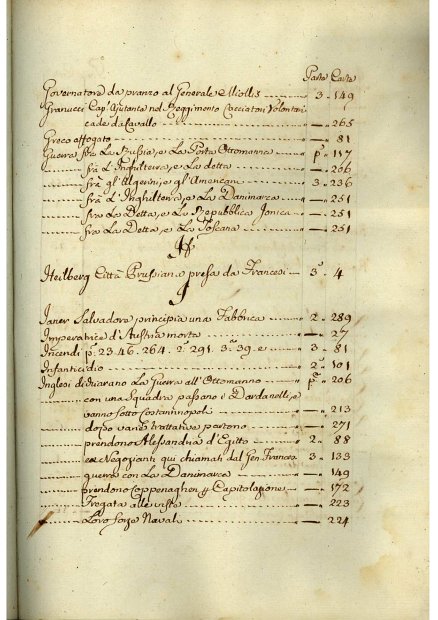 Parte Carte
Governatore da pranzo al Generale Miollis 3 - 149
Granucci Cap. Ajutante nel Reggimento Cacciatori Volontari
cade da Cavallo - - 265
Greco affogato - 81
Guerra frà La Russia, e La Porta Ottomanna pª - 117
frà L'Inghilterra, e La detta - 206
frà gl'Algerini, e gl'Americani 3 - 236
frà L'Inghilterra, e La Danimarca - 251
frà La Detta, e La Repubblica Jonica - 251
frà La Detta, e La Toscana - 251
H
Heilberg Città Prussiana presa da Francesi 3ª 4
I
Janer Salvadore principia una Fabbrica 2 - 289
Imperatrice d'Austria morta - 27
Incendi pª 23. 46. 264. 2ª 291. 3ª 39. e 3 - 81
Infanticidio 2ª 101
Inglesi dichiarano La Guerra all'Ottomanno pª - 206
con una Squadra passano i Dardanelli, e
vanno sotto Costantinopoli - 213
dopo vane trattative partono - 271
prendono Alessandria d'Egitto 2 - 88
e Negozianti qui chiamati dal Gen. Francese 3 - 133
guerra con La Danimarca - 149
prendono Coppenaghen Capitolazione - 172
Fregata alle viste - 223
Loro forze Navali - 224